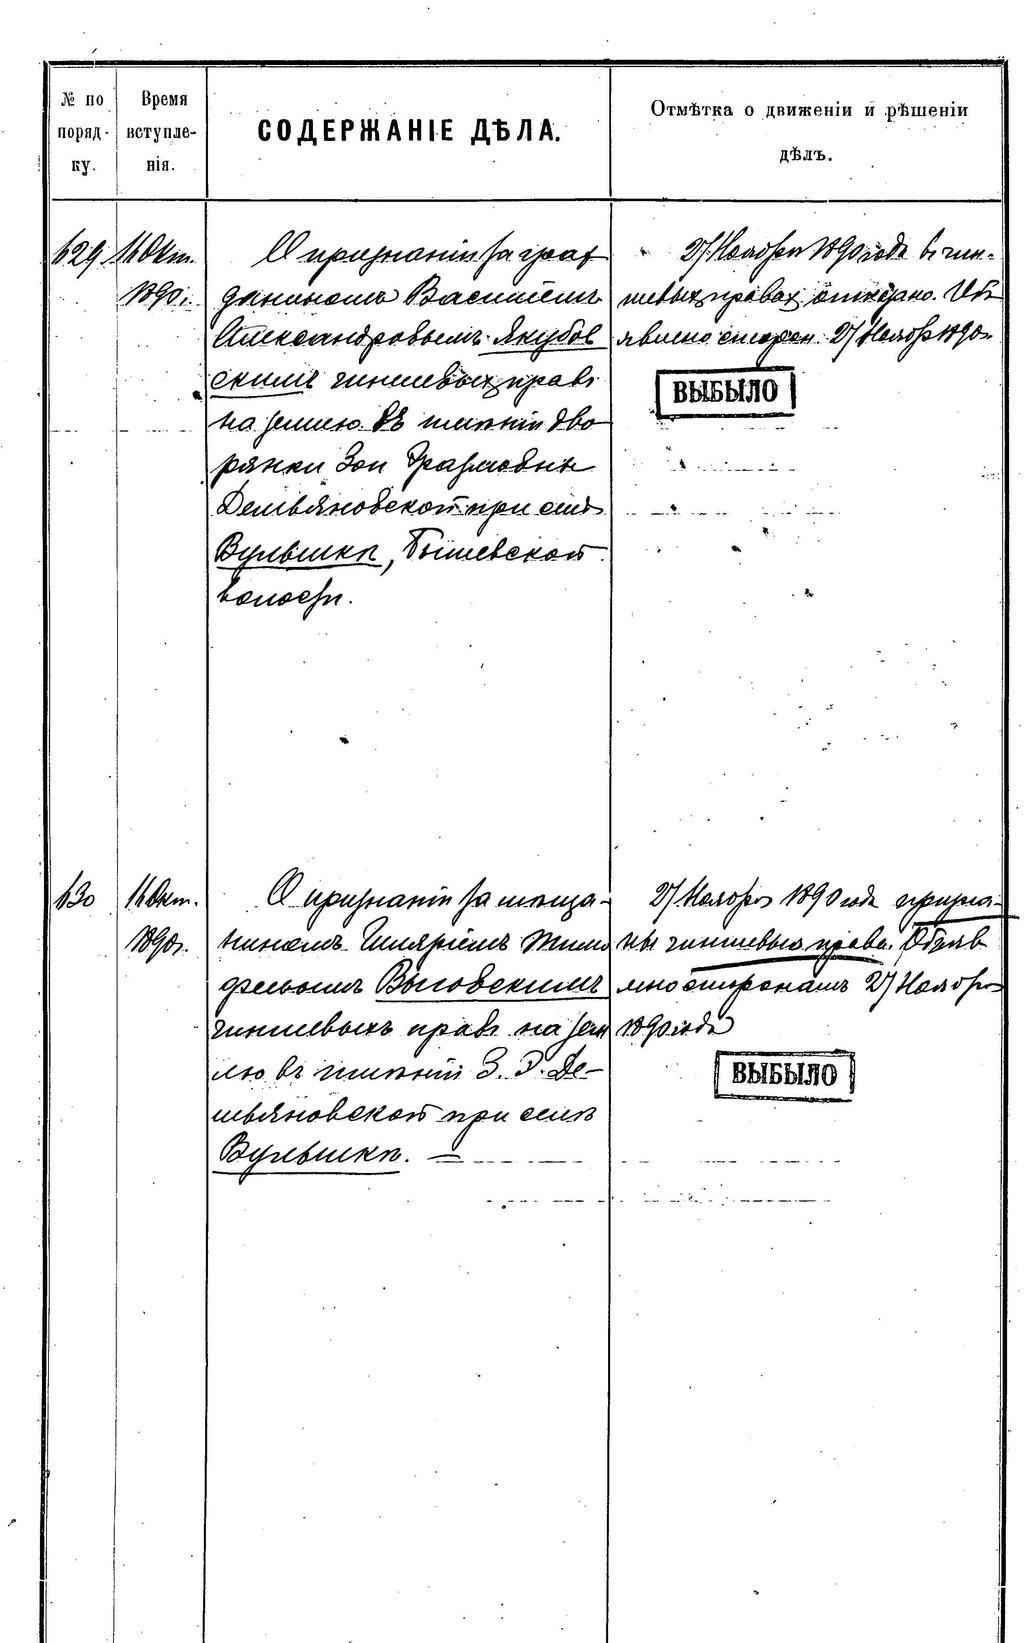 № по поряд-ку.
Время вступле-нія.
СОДЕРЖАНІЕ ДѢЛА.
Отмѣтка о движеніи и рѣшеніи
дѣлъ.
629
11 Окт.
1890 г.
О признаніи за граж
даниномъ Василіемъ
Александровымъ Якубов
скимъ чиншевыхъ правъ
на землю въ имѣніи дво
рянки Зои
Демьяновской при селѣ
Вульшкѣ, Бышевской
волости.
27 Ноября 1890 года въ чин-
шевыхъ правахъ отказано. Объ
явлено сторон. 27 Ноября 1890 г.
ВЫБЫЛО
630
11 Окт.
1890 г.
О признаніи за мѣща-
ниномъ
Выговскимъ
чиншевыхъ правъ на зем
лю въ имѣніи З. Э. Де-
мьяновской при селѣ
Вульшкѣ. —
27 Ноября 1890 года призна-
ны чиншевыя права. Объяв
лено сторонамъ 27 Ноября
1890 года
ВЫБЫЛО